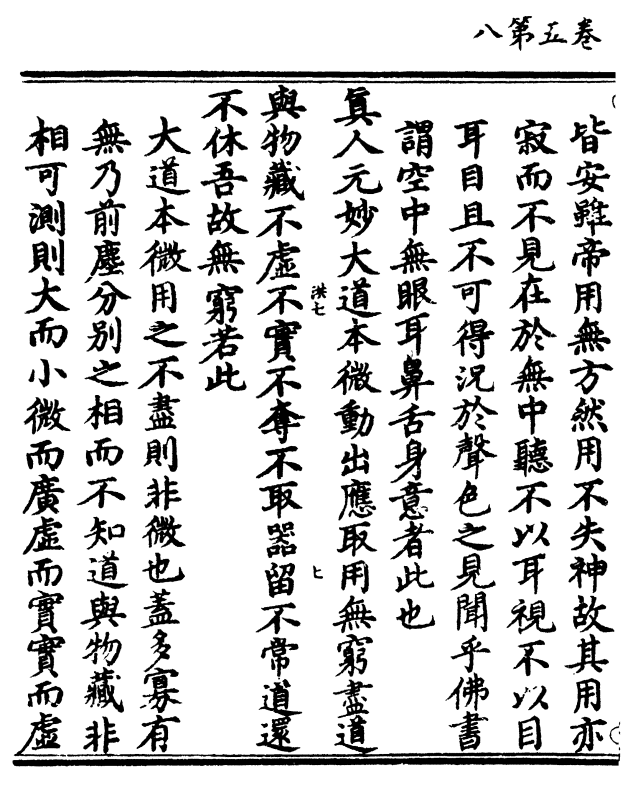 八第五卷
皆安雖帝用無方然用不失神故其用亦
寂而不見在於無中聽不以耳視不以目
耳目且不可得況於聲色之見聞乎佛書
謂空中無眼耳鼻舌身意者此也
真人元妙大道本微動出應取用無窮盡道
洪七
七
與物藏不虛不實不奪不取器留不常道還
不休吾故無窮若此
大道本微用之不盡則非微也蓋多寡有
無乃前塵分別之相而不知道與物藏非
相可測則大而小微而廣虛而實實而虛